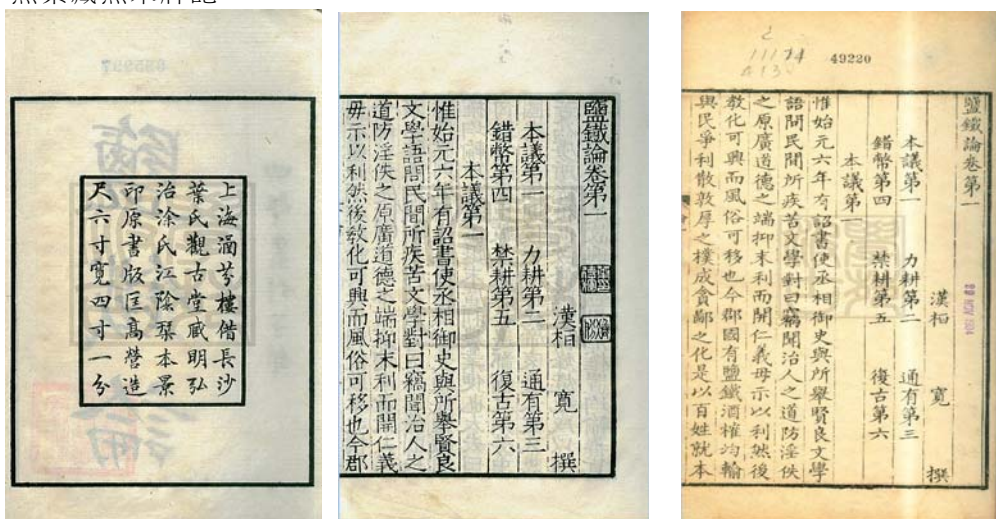 上海涵芬樓借長沙
葉氏觀古堂臧明弘
治涂氏江陰槧本景
印原書版匡高營造
尺六寸寬四寸一分
鹽鐵論卷第一
漢桓 寬 撰
本議第一 力耕第二 通有第三
錯幣第四 禁耕第五 復古第六
本議第一
惟始元六年有詔書使丞相御史與所舉賢良
文學語問民間所疾苦文學對曰竊聞治人之
道防淫佚之原廣道德之端抑末利而開仁義
毋示以利然後教化可興而風俗可移也今郡
49220
鹽鐵論卷第一
漢桓 寬 撰
本議第一 力耕第二 通有第三
錯幣第四 禁耕第五 復古第六
本議第一
惟始元六年有詔書使丞相御史與所舉賢良文學
語問民間所疾苦文學對曰竊聞治人之道防淫佚
之原廣道德之端抑末利而開仁義毋示以利然後
教化可興而風俗可移也今郡國有鹽鐵酒榷均輸
與民爭利散敦厚之樸成貪鄙之化是以百姓就本